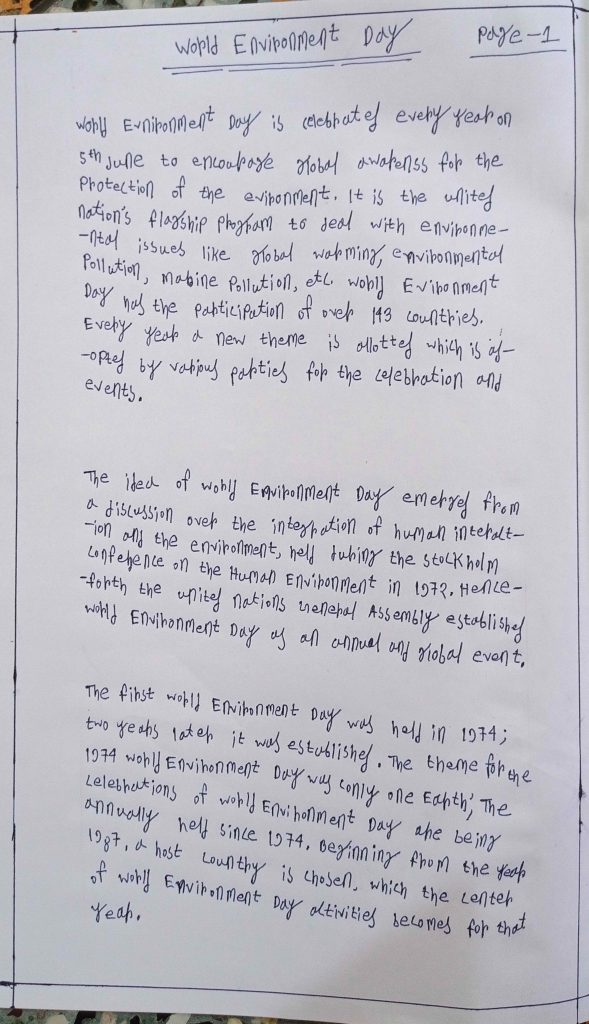 World Environment Day
Page-1
World Evnironment Day is celebrated every year on
5th June to encourage global awarenss for the
Protection of the evironment. It is the united
nation's flagship program to deal with environme-
-ntal issues like global warming, environmental
Pollution, marine Pollution, etc. World Evironment
Day has the participation of over 143 countries.
Every year a new theme is allotted which is ad-
-opted by various parties for the celebration and
events.
The idea of World Environment Day emerged from
a discussion over the integration of human interact-
-ion and the environment, held during the Stockholm
Conference on the Human Environment in 1972. Hence-
-forth the united nations General Assembly established
World Environment Day as an annual and global event.
The first world Environment Day was held in 1974;
two years later it was established. The theme for the
1974 World Environment Day was 'only one Earth', The
celebrations of world Environment Day are being
annually held since 1974. Beginning from the year
1987, a host country is chosen, which the center
of world Environment Day activities becomes for that
year.